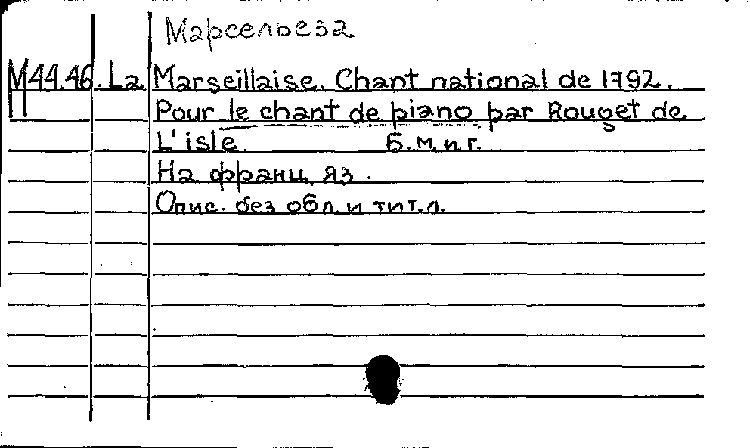 Марсельеза
М44.46. La Marseillaise. Chant national de 1792.
Pour le chant de piano par Rouget de
L'isle Б.м. и г.
На франц. яз.
Опис. без обл. и тит. л.